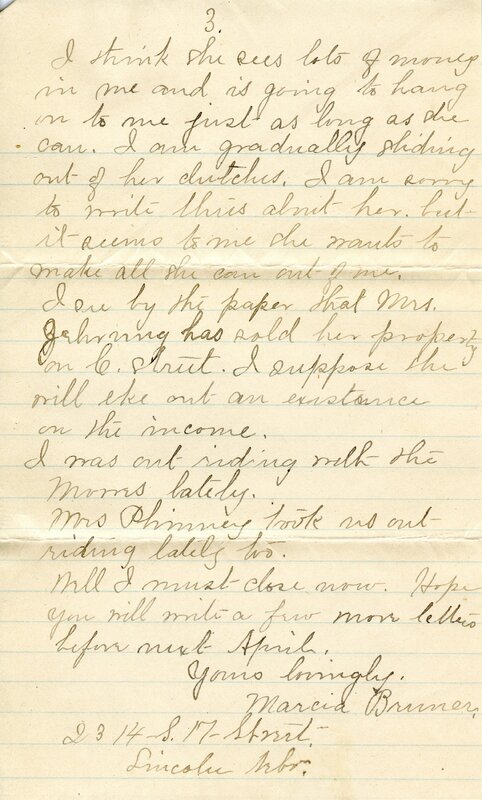 3.
I think she sees lots of money
in me and is going to hang
on to me just as long as she
can. I am gradually sliding
out of her clutches. I am sorry
to write thus about her. but
it seems to me she wants to
make all she can out of me.
I see by the paper that Mrs.
Jehrung has sold her property
on C. Street. I suppose she
will eke out an existance
on the income.
I was out riding with the
Morris lately.
Mrs Phinney took us out
riding lately too.
Well I must close now. Hope
you will write a few more letters
before next April.
Yours lovingly.
Marcia Bruner.
2314-S. 17-Street.
Lincoln Nebr.